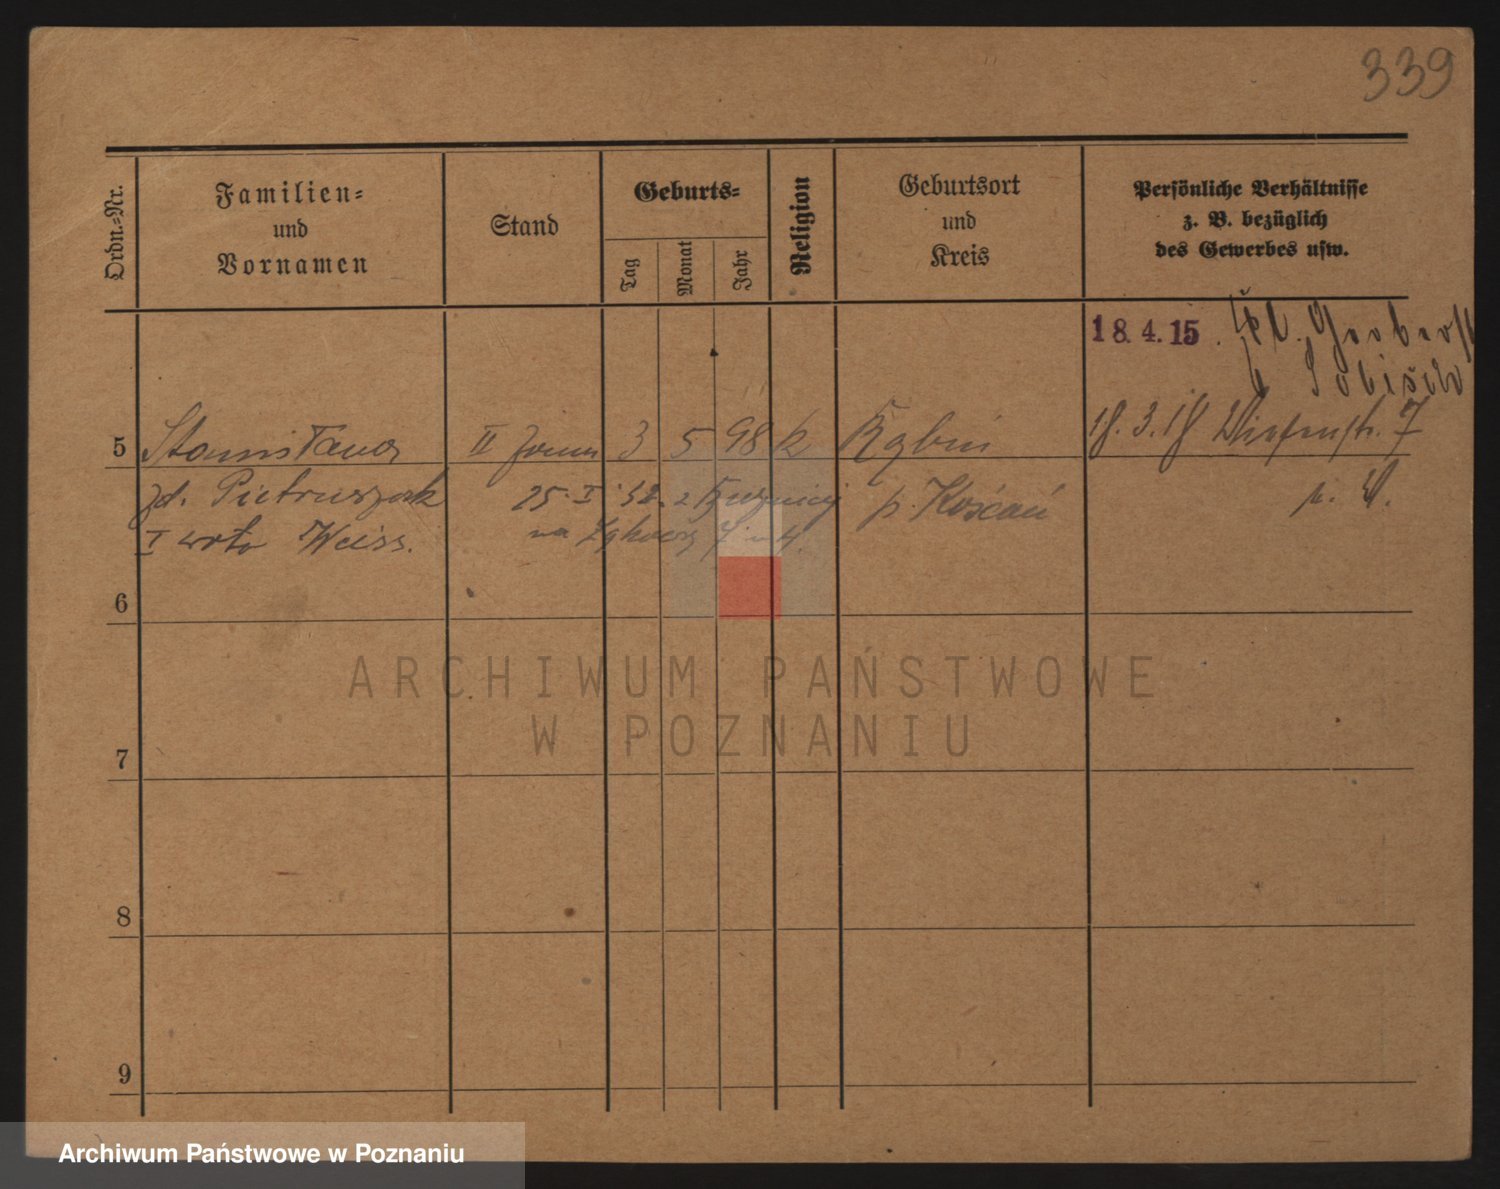 339
Ordn.-Nr.
Familien-
und
Vornamen
Stand
Geburts-
Tag
Monat
Jahr
Religion
Geburtsort
und
Kreis
Persönliche Verhältnisse
z. B. bezüglich
des Gewerbes usw.
18.4.15
5 Stanisława II 3 5 98 k Rąbiń 18.3.18 7
zd. Pietruszak 25. I p. Kościan
I voto Weiss. na 7
6
ARCHIWUM PAŃSTWOWE
W POZNANIU
7
8
9
Archiwum Państwowe w Poznaniu